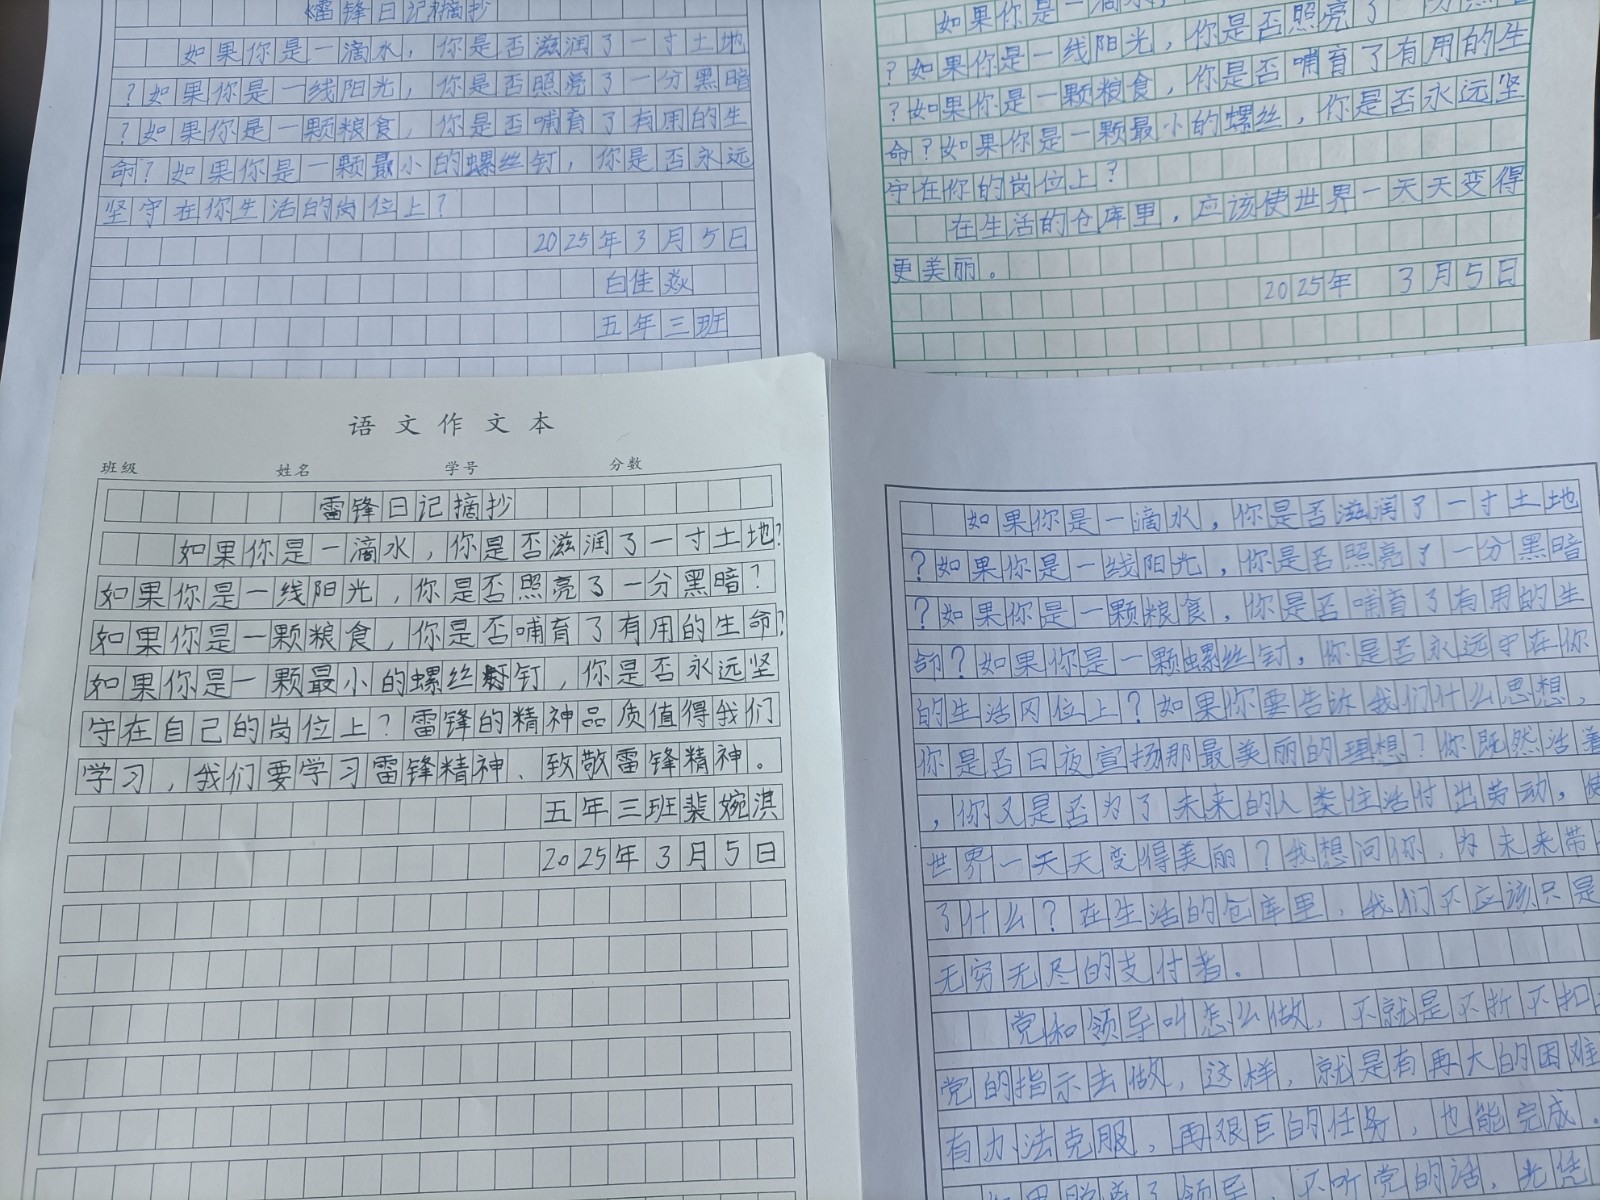 《雷锋日记》摘抄
如果你是一滴水，你是否滋润了一寸土地
？如果你是一线阳光，你是否照亮了一分黑暗
？如果你是一颗粮食，你是否哺育了有用的生
命？如果你是一颗最小的螺丝钉，你是否永远
坚守在你生活的岗位上？
2025年3月5日
白佳焱
五年三班
如果你是一滴水，
？如果你是一线阳光，你是否照亮了一分黑暗
？如果你是一颗粮食，你是否哺育了有用的生
命？如果你是一颗最小的螺丝，你是否永远坚
守在你的岗位上？
在生活的仓库里，应该使世界一天天变得
更美丽。
2025年 3月5日
语文作文本
班级 姓名 学号 分数
雷锋日记摘抄
如果你是一滴水，你是否滋润了一寸土地？
如果你是一线阳光，你是否照亮了一分黑暗？
如果你是一颗粮食，你是否哺育了有用的生命？
如果你是一颗最小的螺丝钉，你是否永远坚
守在自己的岗位上？雷锋的精神品质值得我们
学习，我们要学习雷锋精神、致敬雷锋精神。
五年三班裴婉淇
2025年3月5日
如果你是一滴水，你是否滋润了一寸土地
？如果你是一线阳光，你是否照亮了一分黑暗
？如果你是一颗粮食，你是否哺育了有用的生
命？如果你是一颗螺丝钉，你是否永远守在你
的生活冈位上？如果你要告诉我们什么思想，
你是否日夜宣扬那最美丽的理想？你既然活着
，你又是否为了未来的人类生活付出劳动，使
世界一天天变得美丽？我想问你，为未来带
了什么？在生活的仓库里，我们不应该只是
无穷无尽的支付者。
党和领导叫怎么做，不就是不折不扣
党的指示去做，这样，就是有再大的困难
有办法克服，再艰巨的任务，也能完成。
如果脱离了领导，不听党的话，光凭